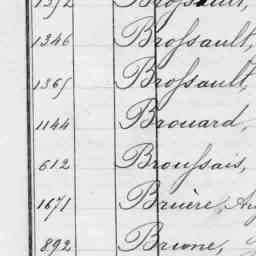 1372 Brossault,
1346 Brossault,
1365 Brossault,
1144 Brouard,
612 Broussais,
1671 Bruère, Au
892 Brune,